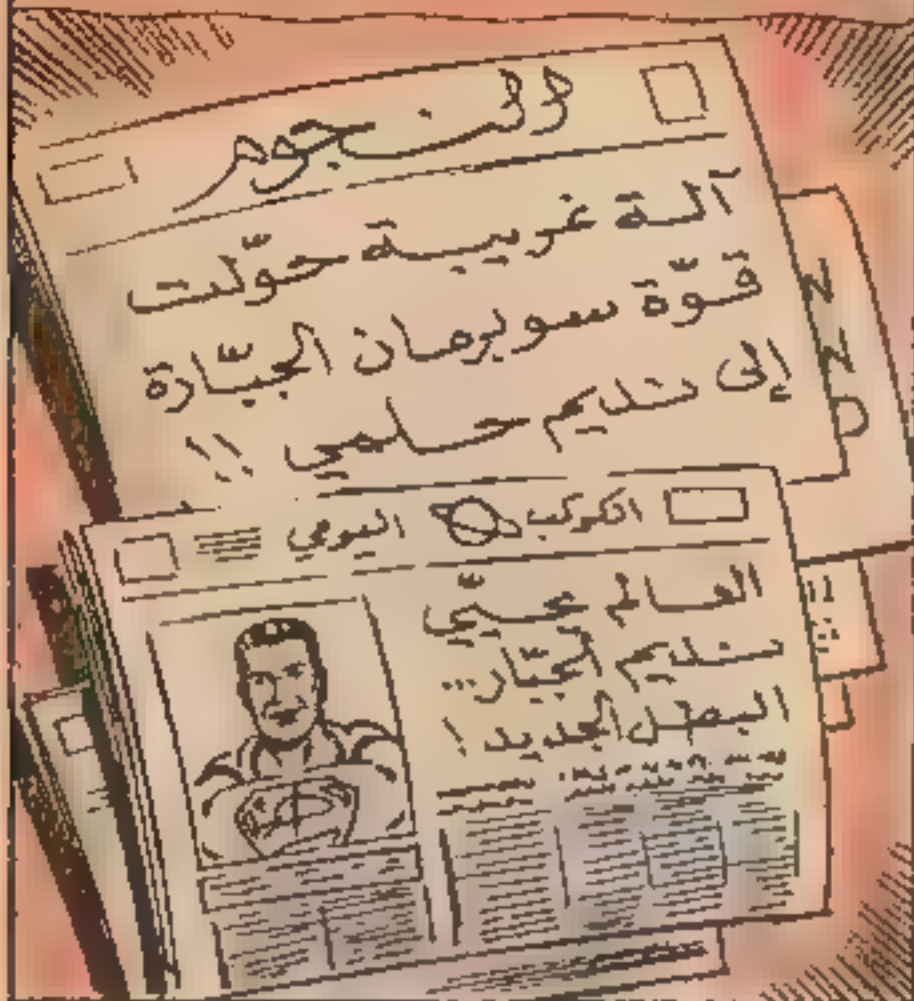 النجوم
آلة غريبة حوّلت
قوّة سوبرمان الجبّارة
إلى نديم حلمي !!
الكوكب اليومي
العالم يحيّي
نديم الجبّار...
البطل الجديد !